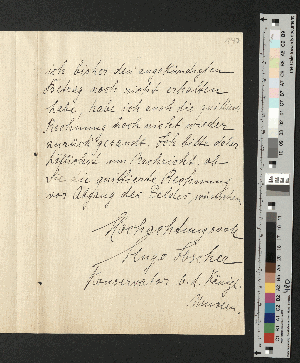 ich bisher den angekündigten
Betrag noch nicht erhalten
habe, habe ich auch die quittierte
Rechnung noch nicht wieder
zurückgesandt. Ich bitte daher
höflichst um Nachricht, ob
Sie die quittierte Rechnung
vor Abgang des Geldes wünschen.
Hochachtungsvoll
Hugo
Konservator a. d. Königl.
Museen.